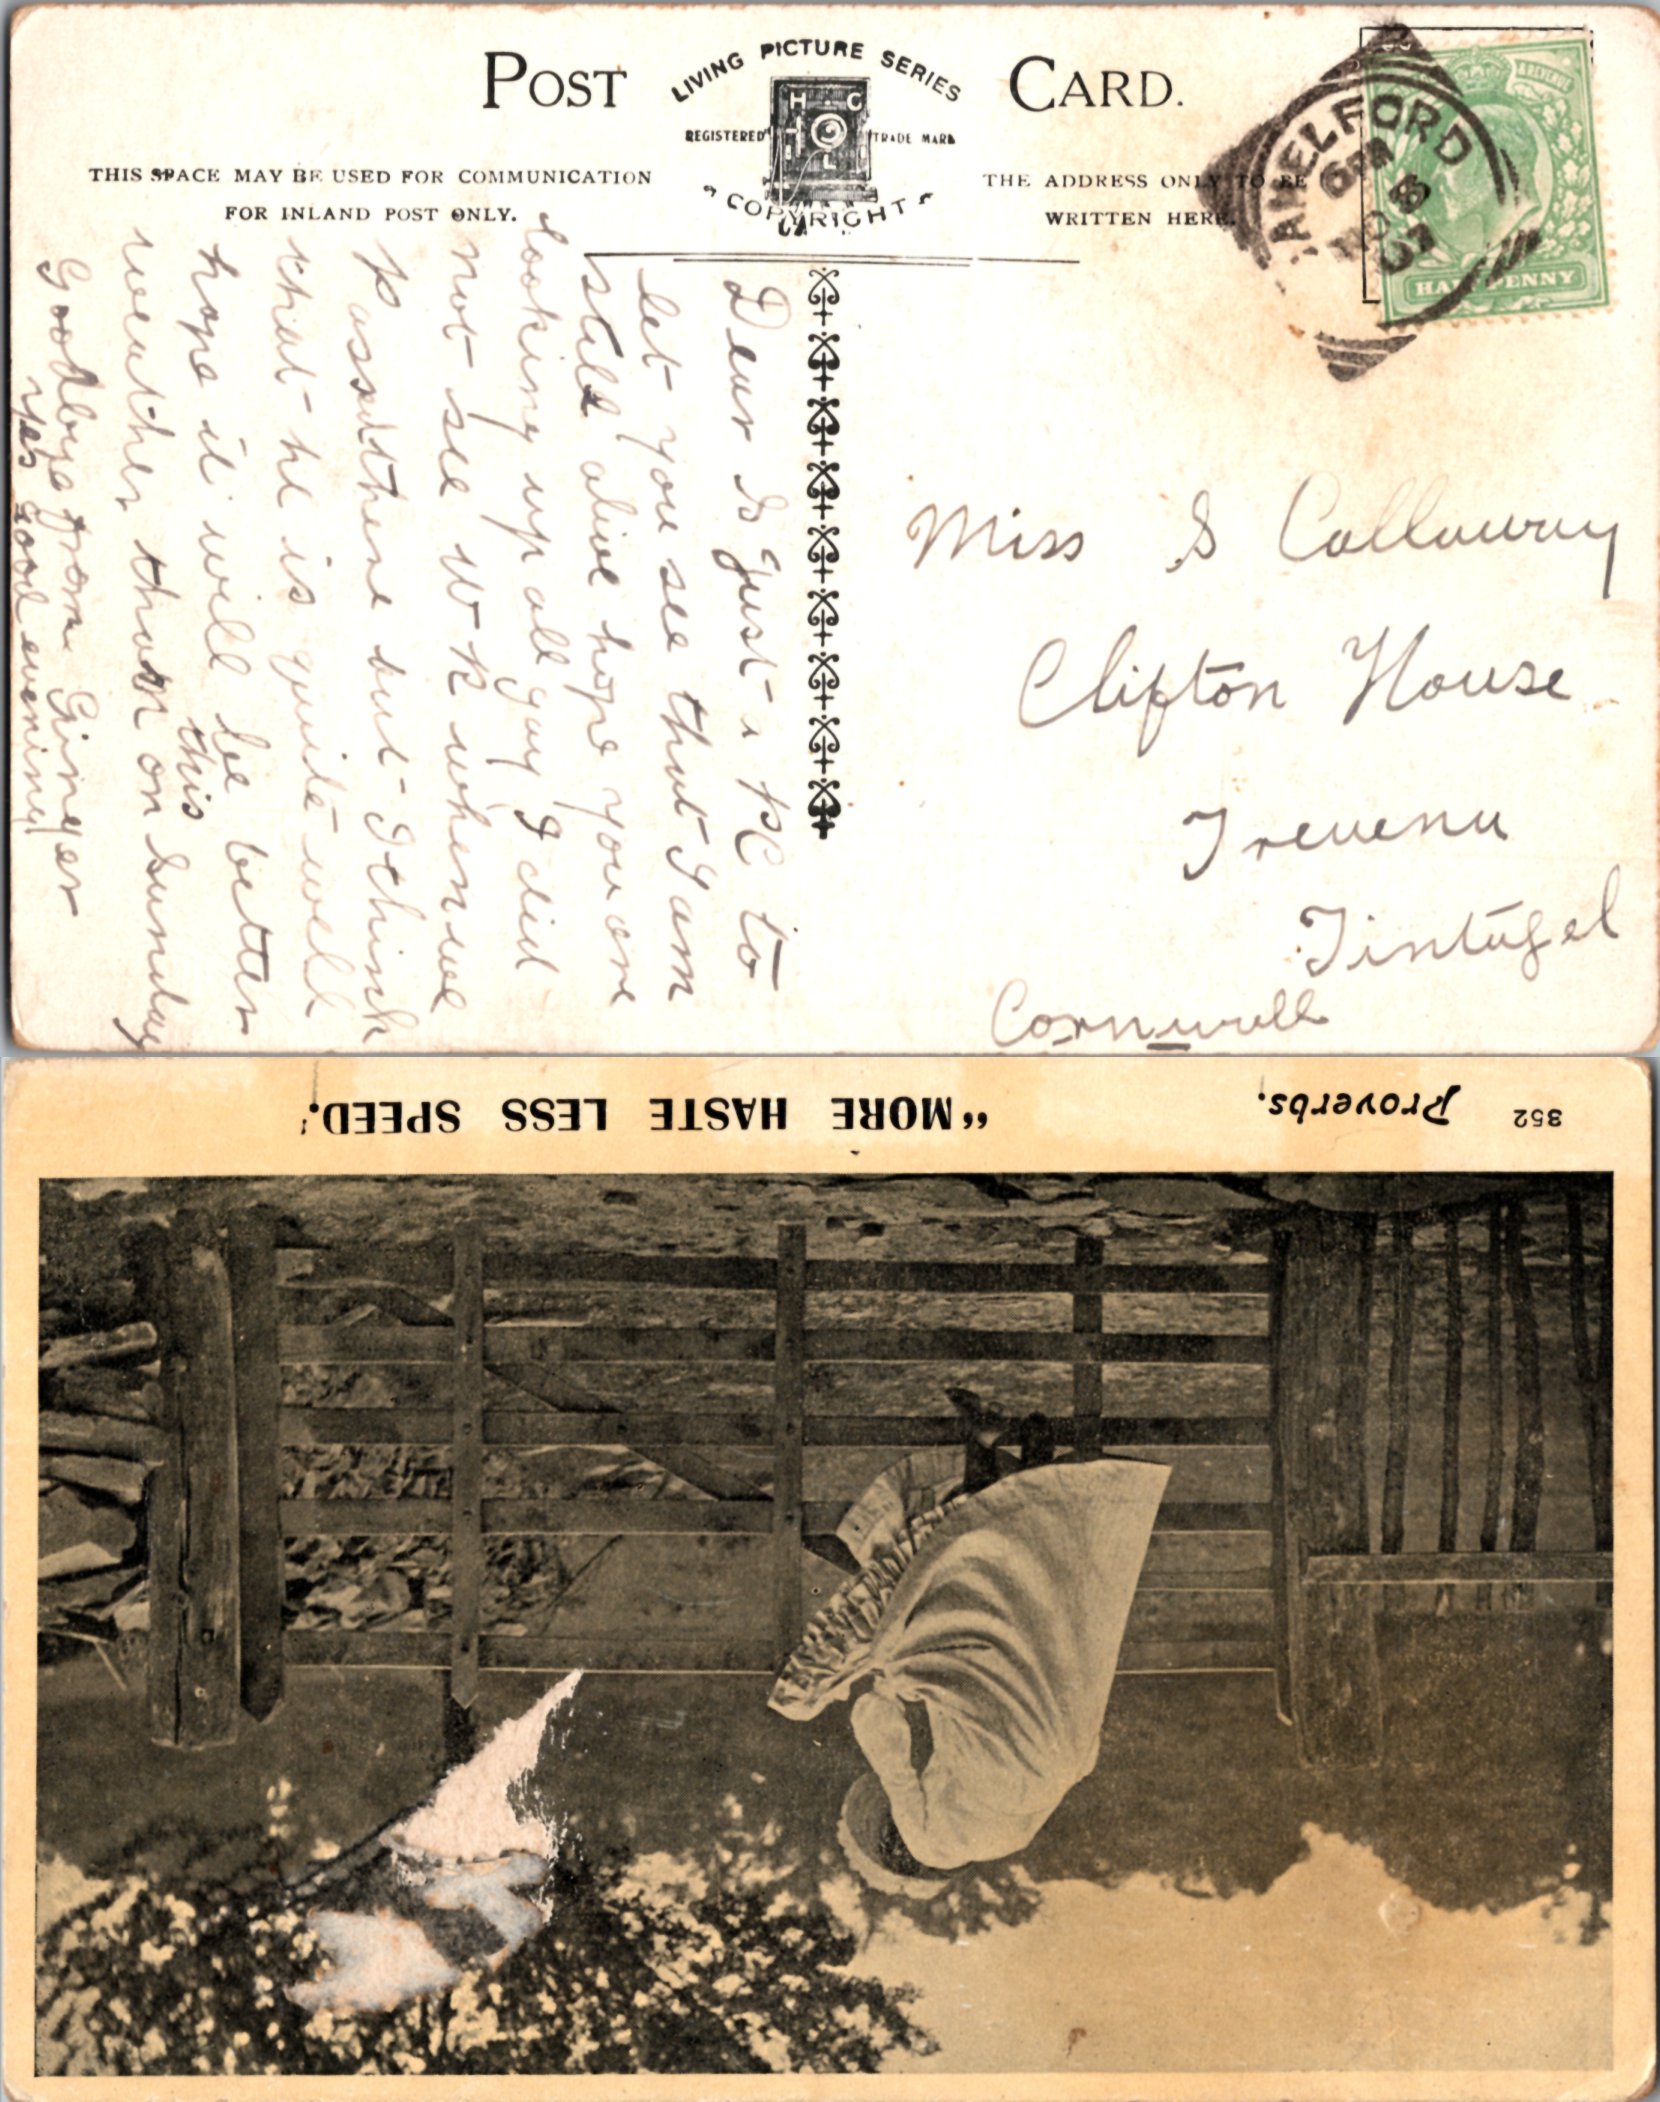 POST CARD.
LIVING PICTURE SERIES
H. C.
REGISTERED TRADE MARK
COPYRIGHT
THIS SPACE MAY BE USED FOR COMMUNICATION
FOR INLAND POST ONLY.
THE ADDRESS ONLY TO BE
WRITTEN HERE.
CAMELFORD
6 PM
NO 5
HALFPENNY
Dear S Just a PC to
let you see that I am
still alive hope you are
looking up all gay I did
not see W K when we
passed there but I think
that he is quite well
hope it will be better
this
weather than on Sunday
Goodbye from Ginger
yes good evening
Miss S Callaway
Clifton House
Trevena
Tintagel
Cornwall
352
Proverbs.
"MORE HASTE LESS SPEED."